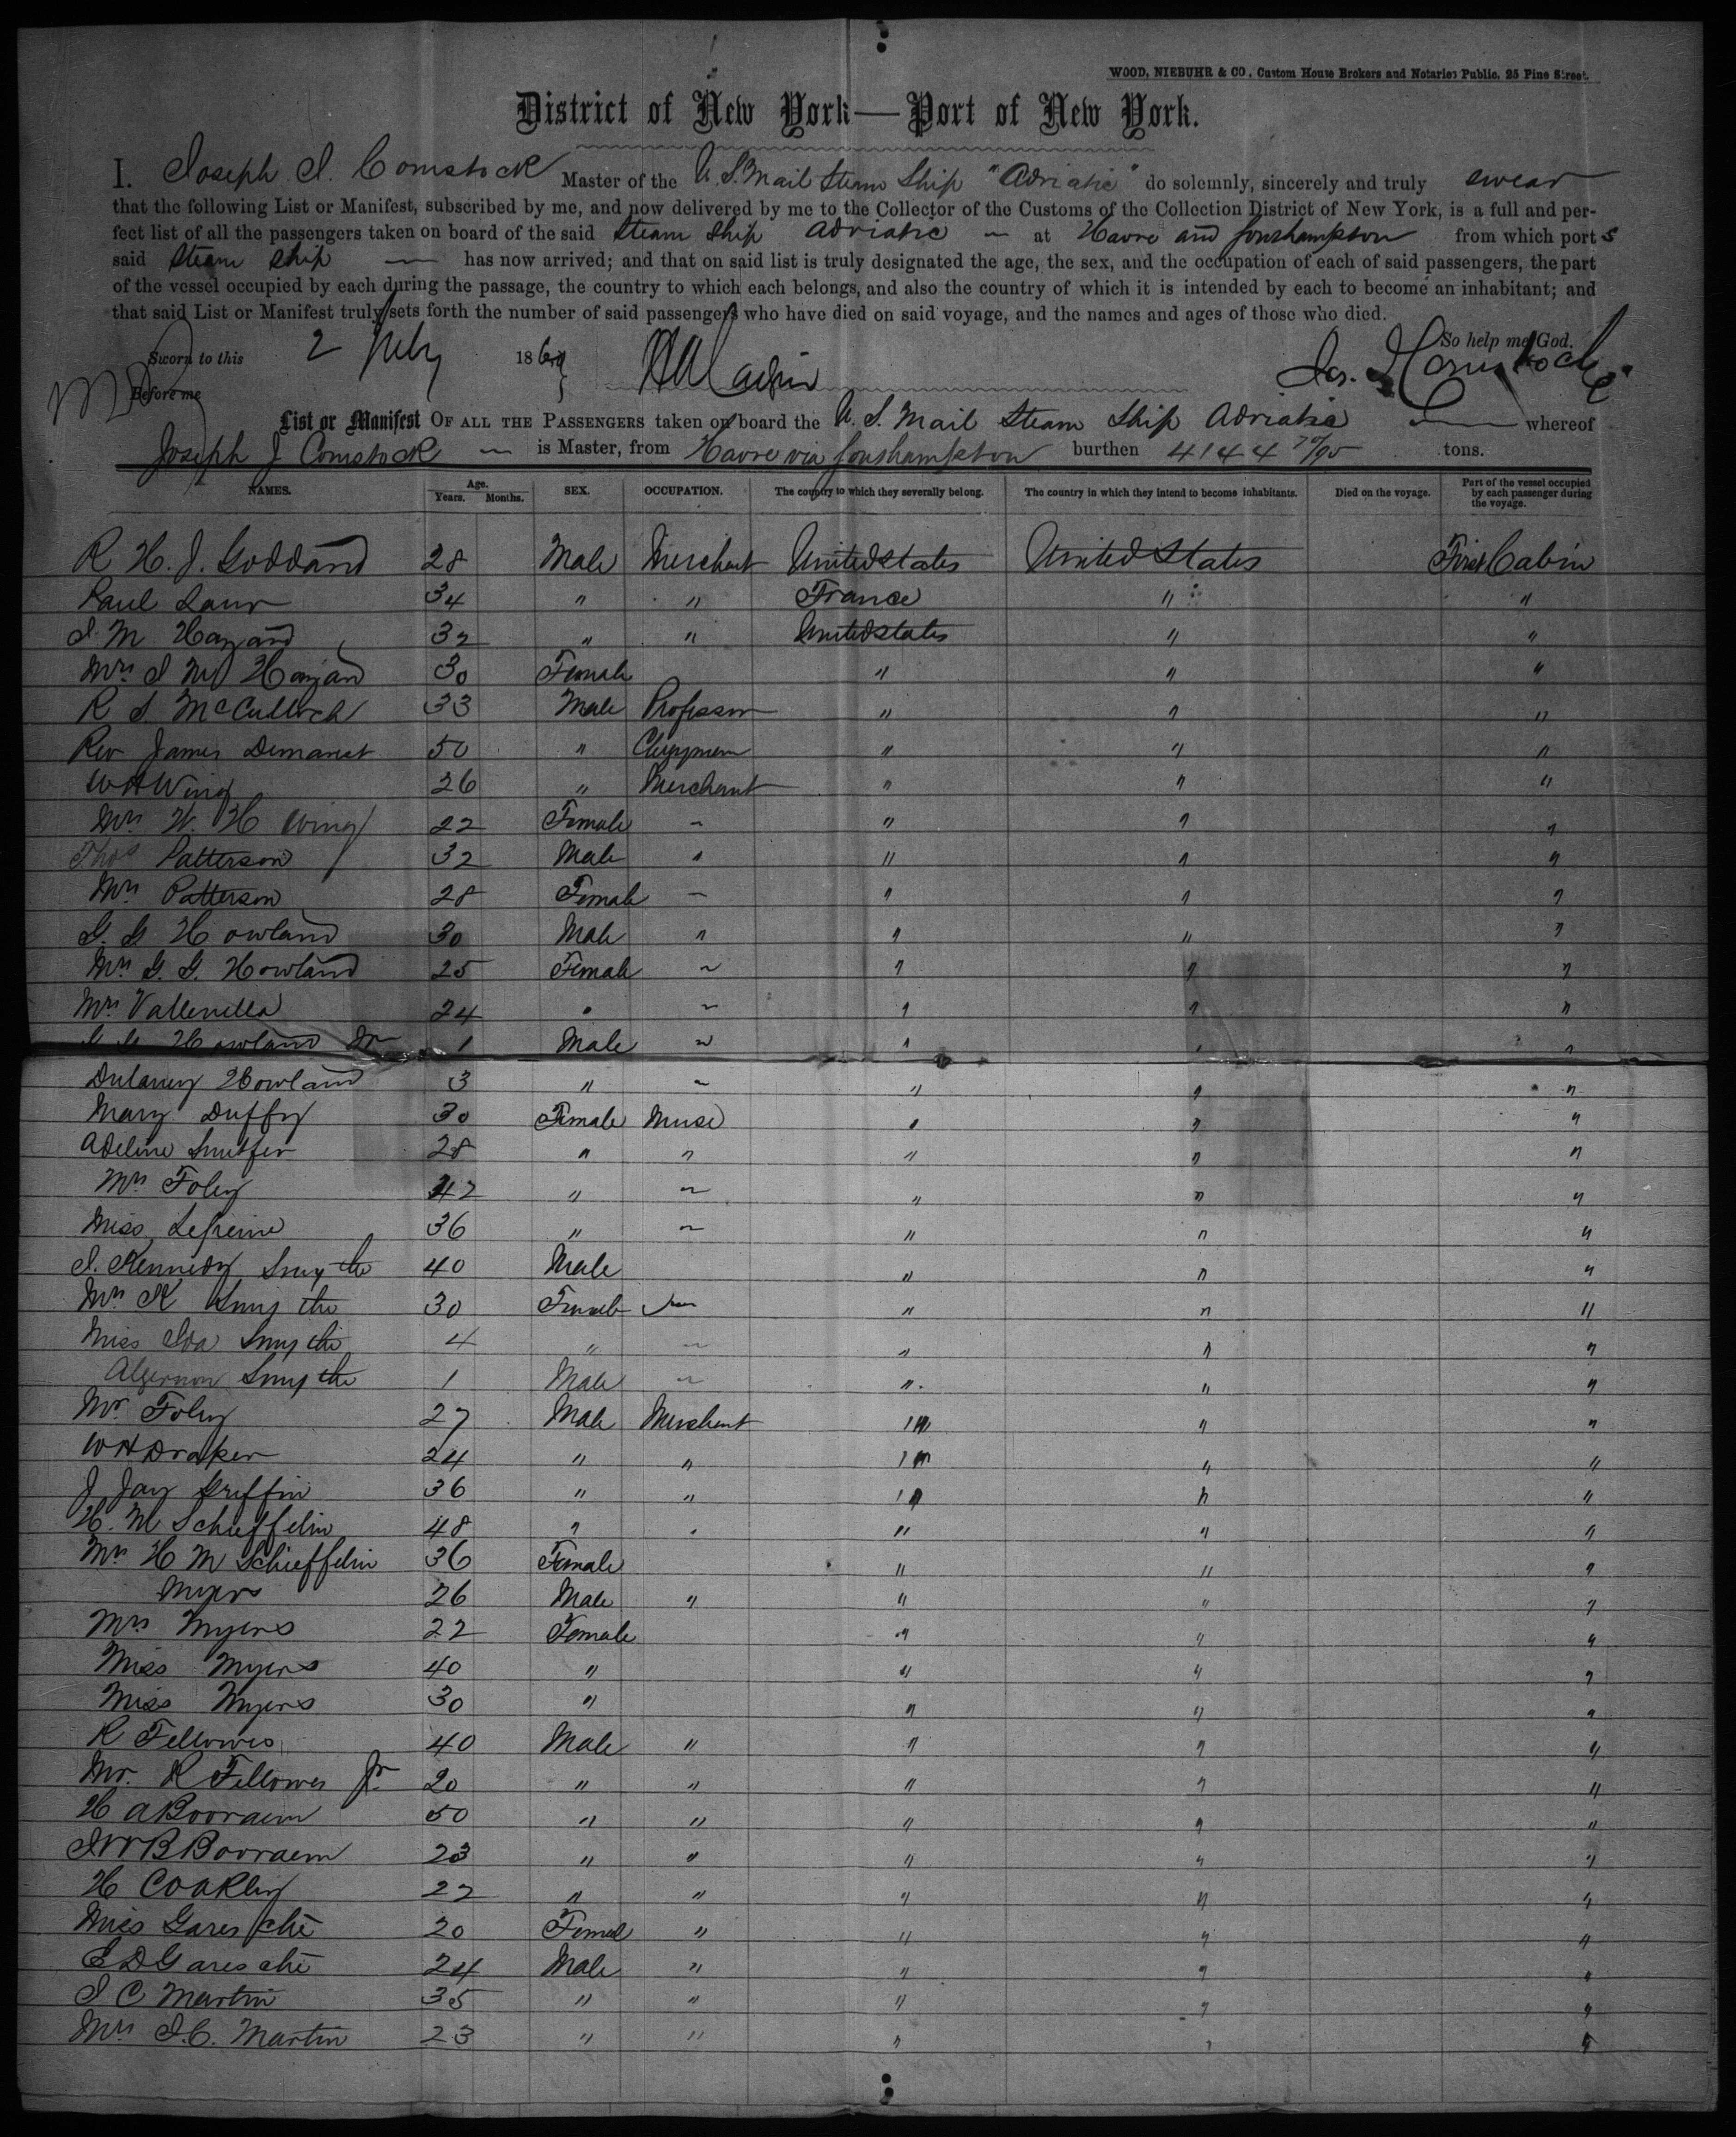 WOOD, NIEBUHR & CO, Custom House Brokers and Notaries Public, 25 Pine Street.
District of New York—Port of New York.
I. Joseph J. Comstock Master of the U.S. Mail Steam Ship "Adriatic" do solemnly, sincerely and truly swear
that the following List or Manifest, subscribed by me, and now delivered by me to the Collector of the Customs of the Collection District of New York, is a full and per-
fect list of all the passengers taken on board of the said Steam Ship Adriatic at Havre and Southampton from which ports
said Steam Ship has now arrived; and that on said list is truly designated the age, the sex, and the occupation of each of said passengers, the part
of the vessel occupied by each during the passage, the country to which each belongs, and also the country of which it is intended by each to become an inhabitant; and
that said List or Manifest truly sets forth the number of said passengers who have died on said voyage, and the names and ages of those who died.
So help me God.
Sworn to this 2 July 1860 Jos. J Comstock
Before me
List or Manifest OF ALL THE PASSENGERS taken on board the U. S. Mail Steam Ship Adriatic whereof
Joseph J Comstock is Master, from Havre via Southampton burthen 4144 70/95 tons.
NAMES. Age. Years. Months. SEX. OCCUPATION. The country to which they severally belong. The country in which they intend to become inhabitants. Died on the voyage. Part of the vessel occupied by each passenger during the voyage.
R H. J. Goddard 28 Male Merchant United States United States First Cabin
Paul 34 " " France " "
S. M. Hazard 32 " " United States " "
Mrs S M Hazard 30 Female " " "
R S McCulloch 33 Male Professor " " "
Rev James Demarest 50 " Clergyman " " "
W H Wing 26 " Merchant " " "
Mrs W. H Wing 22 Female ~ " " "
Thos Patterson 32 Male " " " "
Mrs Patterson 28 Female ~ " " "
G. G Howland 30 Male " " " "
Mrs G. G. Howland 25 Female ~ " " "
Mrs Vallenilla 24 " ~ " " "
G G Howland Jr 1 Male ~ " " "
Dulaney Howland 3 " ~ " " "
Mary Duffy 30 Female Nurse " " "
Adeline 28 " " " " "
Mrs Foley 42 " ~ " " "
Miss 36 " ~ " " "
J. Kennedy Smythe 40 Male " " "
Mrs K Smythe 30 Female ~ " " "
Miss Ida Smythe 4 " ~ " " "
Algernon Smythe 1 Male ~ " " "
Mr Foley 27 Male Merchant " " "
W H Draper 24 " " " " "
J Jay Griffin 36 " " " " "
H. M Schieffelin 48 " " " " "
Mrs H M Schieffelin 36 Female " " "
Myers 26 Male " " " "
Mrs Myers 22 Female " " "
Miss Myers 40 " " " "
Miss Myers 30 " " " "
R Fellowes 40 Male " " " "
Mr. R Fellowes Jr 20 " " " " "
H A Booraem 50 " " " " "
J W B Booraem 23 " " " " "
H Coakley 22 " " " " "
Miss Garesché 20 Female " " " "
E D Garesché 24 Male " " " "
J C Martin 35 " " " " "
Mrs J. C. Martin 23 " " " " "